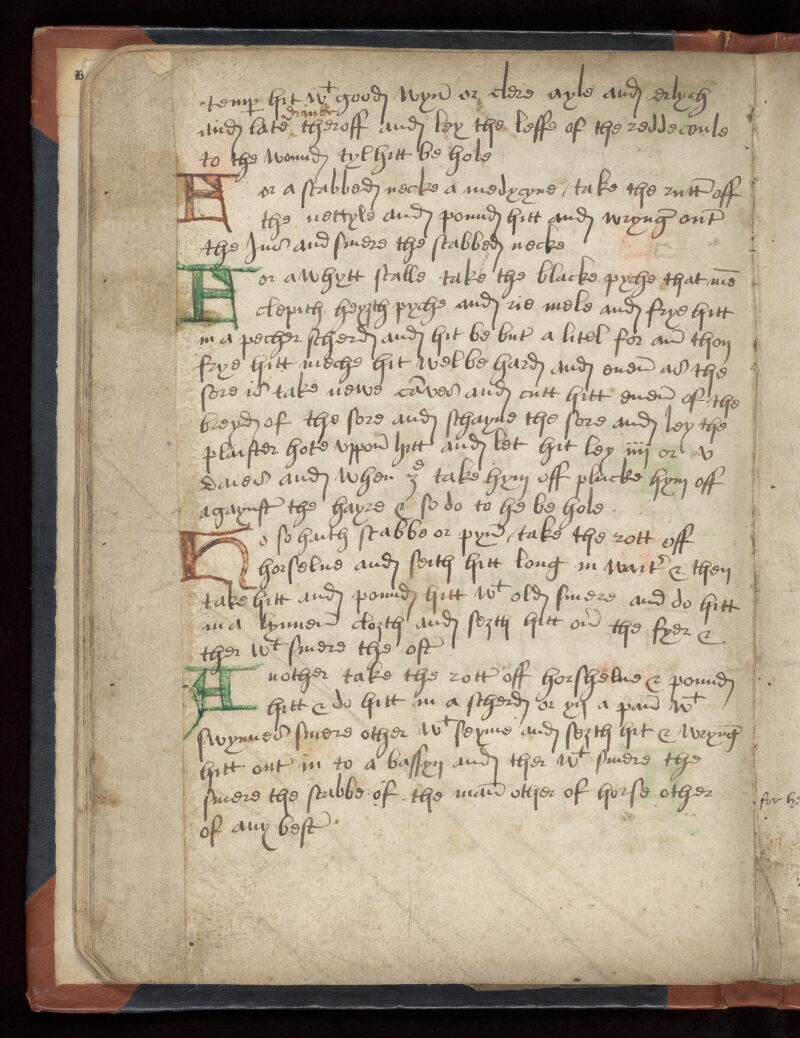 temper hit wt good wyn or clere ayle and erlych
drincke
and late theroff and ley the leffe of the redde coule
to the wound tyl hitt be hole
For a scabbed necke a medycyne / take the rutt off
the nettyle and pound hitt and wryngh out
the Jus and smere the scabbed necke
For a whytt scalle take the blacke pyche that me
clepith heyzth pyche and rie mele and frye hitt
in a pecher scherd and hit be but a litel for an thou
frye hitt meche hit wel be hard and euen as the
sore is take newe canves and cutt hitt euen of the
breyd of the sore and schayne the sore and ley the
plaister hote vppon hitt and let hit ley iiij or v
daies and when take hym off plucke hym off
agaynst the hayre & so do to he be hole .
Ho so haith scabbe or pyn / take the rott off
horselne and seith hitt long in watr & then
take hitt and pound hitt wt old smere and do hitt
in a lynnen clozth and sezth hitt on the fyer &
ther wt smere the oft
Another take the rott off horshelne & pound
hitt & do hitt in a scherd or yn a pan wt
swynnes smere other wt seyme and sezth hit & wryngh
hitt out in to a bassyn and ther wt smere the
smere the scabbe of the man other of horse other
of any best .
for he